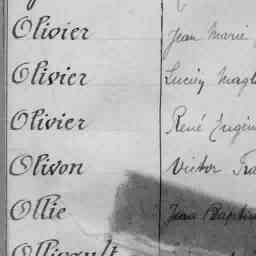 Olivier Jean Marie
Olivier Lucien
Olivier René Eugén
Olivon Victor
Ollie Jean Baptis